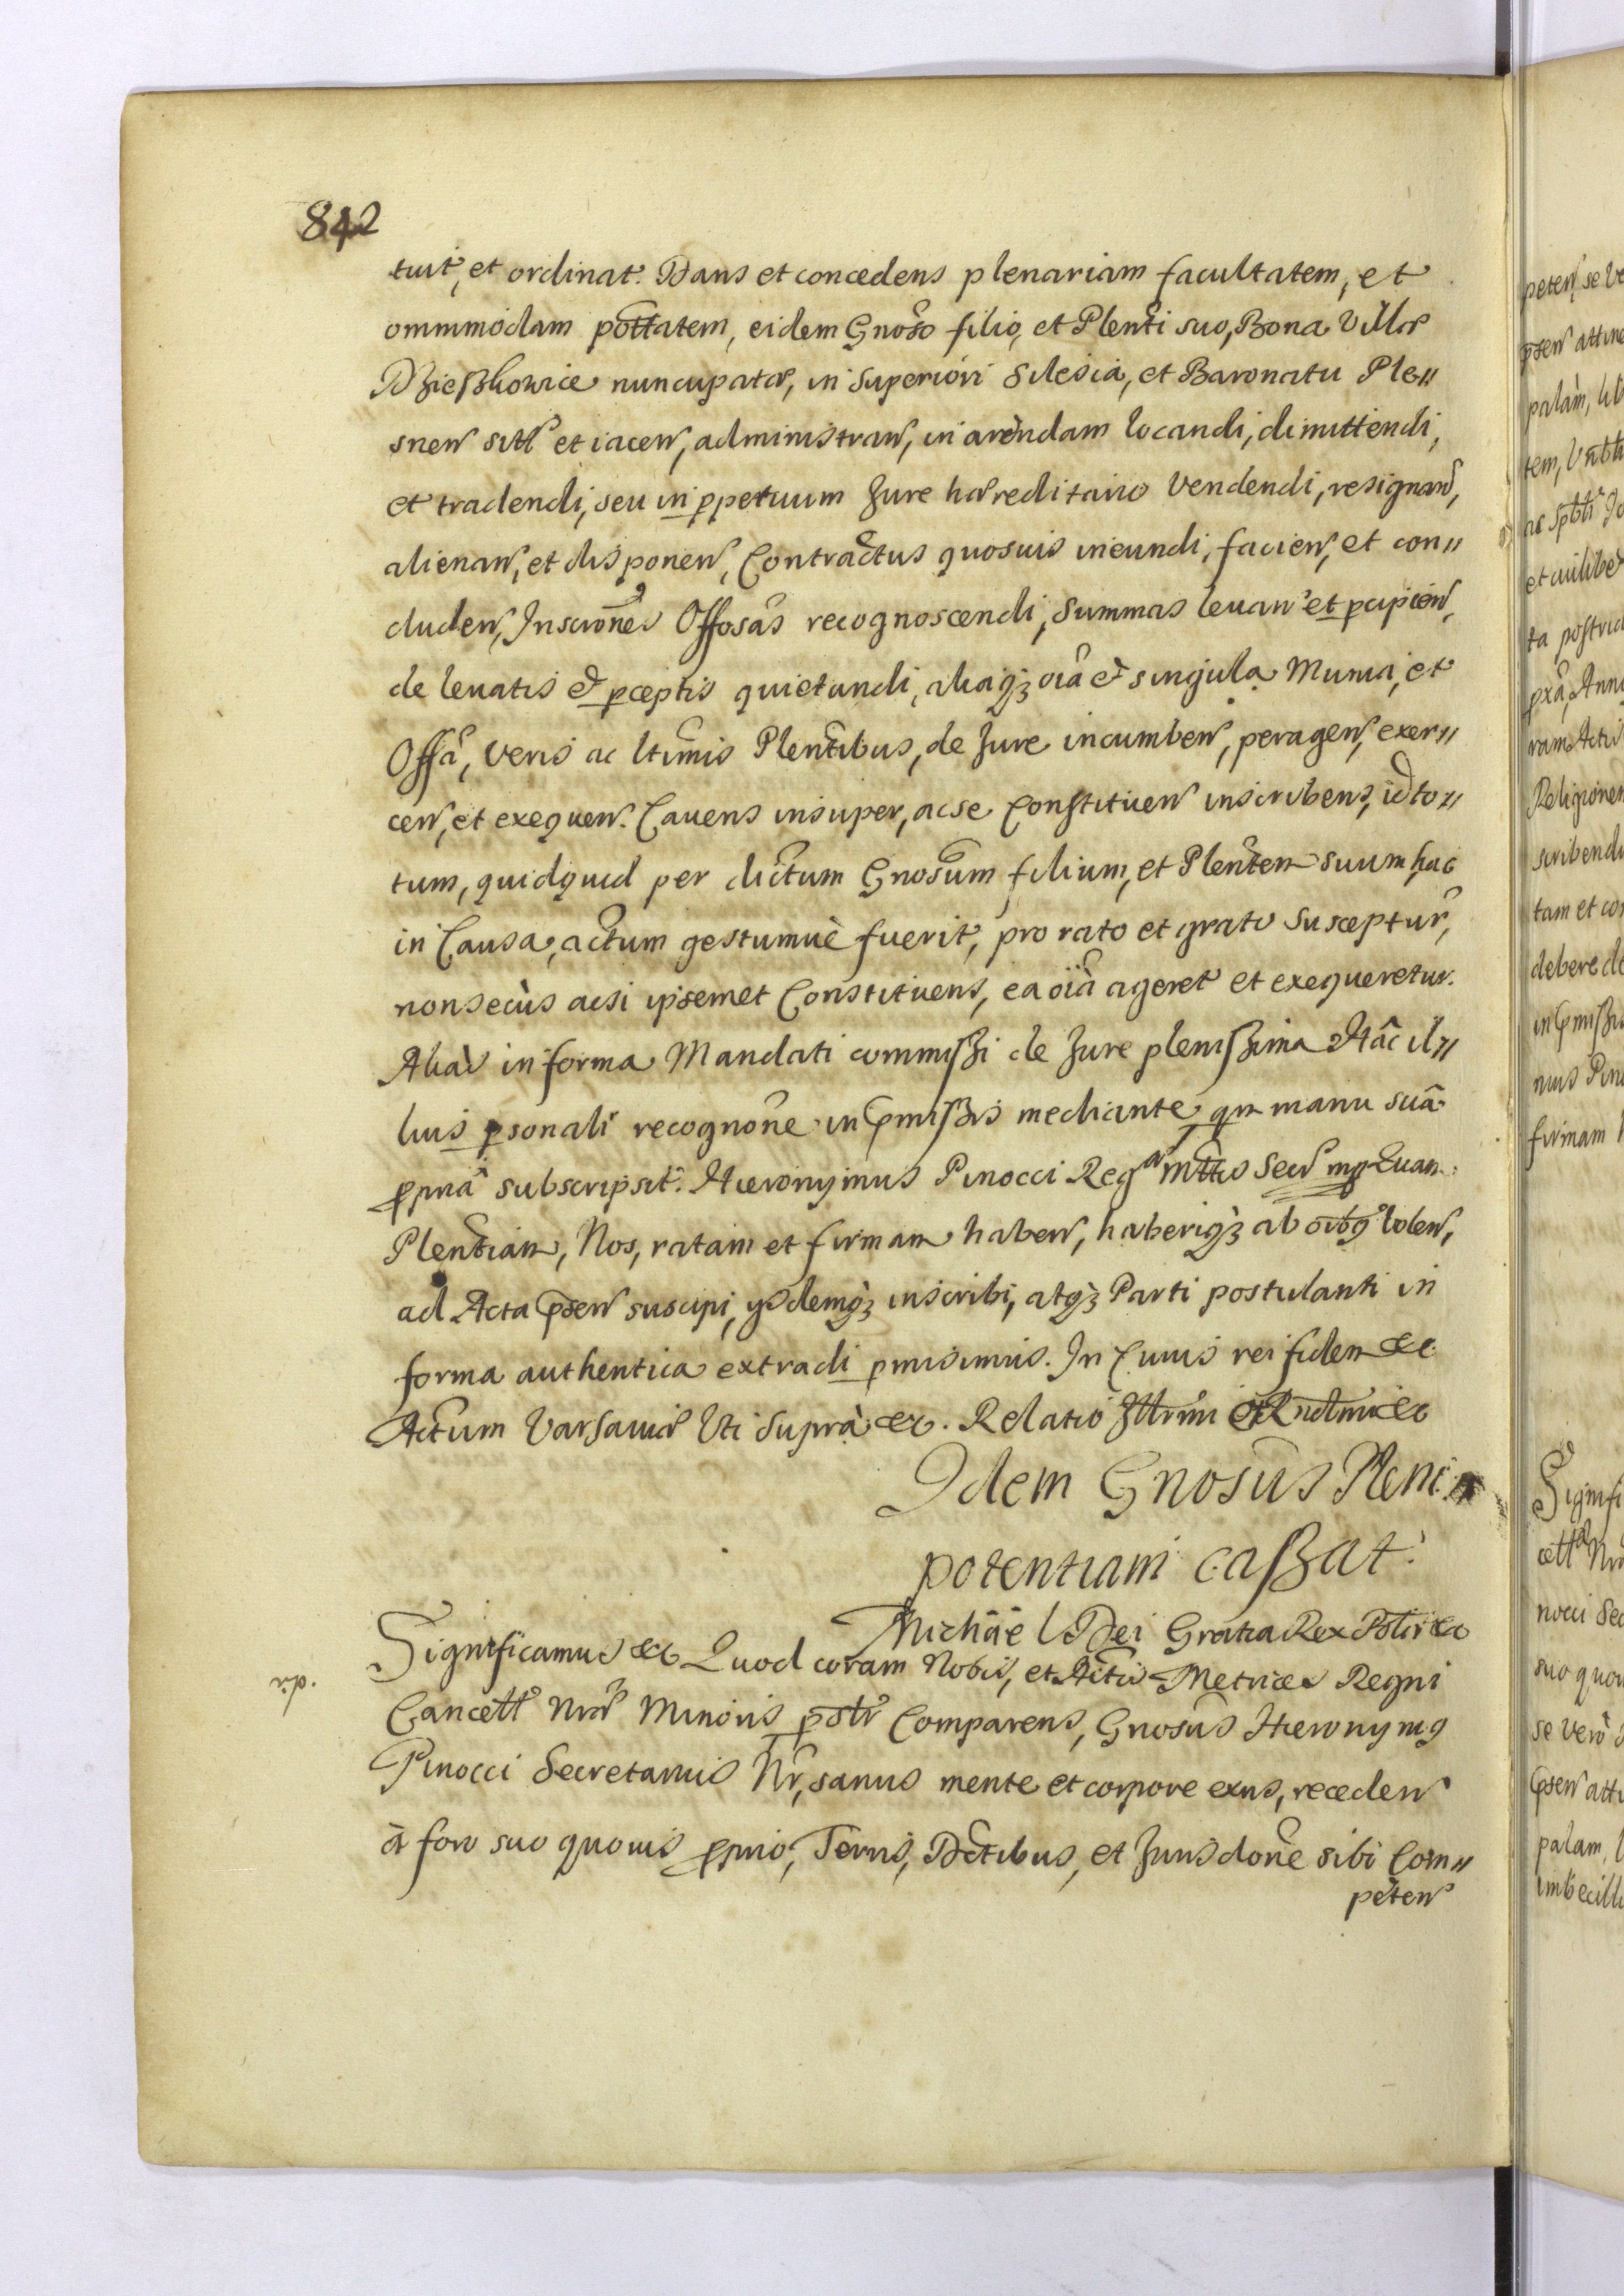 842
tuit, et ordinat. Dans et concedens plenariam facultatem, et
ommmodam pottatem, eidem Gnoso filio, et Plenti suo, Bona Villæ
Dzieszkowice nuncupatæ, in Superiori Silesia, et Baronatu Ple„
snen sitt et iacen, administran, in arendam locandi, dimittendi,
et tradendi, seu in ppetuum Jure hæreditario Vendendi, resignan,
alienan, et disponen, Contractus quosuis ineundi, facien, et con„
cluden, Inscrones Offosas recognoscendi, Summas leuan et pcipien,
de leuatis & pceptis quietandi, aliaq3 oia & singula Munia, et
Offa, Veris ac ltimis Plentibus, de Jure incumben, peragen, exer„
cen, et exequen. Cauens insuper, ac se Constituen inscribens, id to„
tum, quidquid per dictum Gnosum filium, et Plentem suum hac
in Causa, actum gestumuè fuerit, pro rato et grato Susceptur,
non secùs acsi ipsemet Constituens, ea oia ageret et exequeretur.
Alias in forma Mandati commiszi de Jure pleniszima Hâc il„
lius psonali recognone in pmiszis mediante, qm manu suâ
ppriâ subscripsit. Hieronymus Pinocci Regæ Mttis Secr mp Quam
Plentiam, Nos, ratam et firmam haben, haberiq3 ab oibq volen,
ad Acta psen suscipi, ysdemq3 inscribi, atq3 Parti postulanti in
forma authentica extradi pmisimus. In Cuius rei fidem &c.
Actum Varsauiæ Vti Suprà &c. Relatio Jllrmi et Rndmi &c
Idem Gnosus Pleni„
potentiam caszat.
Michâel Dei Gratia Rex Polir &c
Significamus &c Quod coram Nobis, et Actis Metrices Regni
Cancett Nræ Minoris pstr Comparens, Gnosus Hieronymg
Pinocci Secretarius Nr, sanus mente et corpore exns, receden
à foro suo quouis pprio, Terris, Dctibus, et Jurisdone sibi Com„
peten